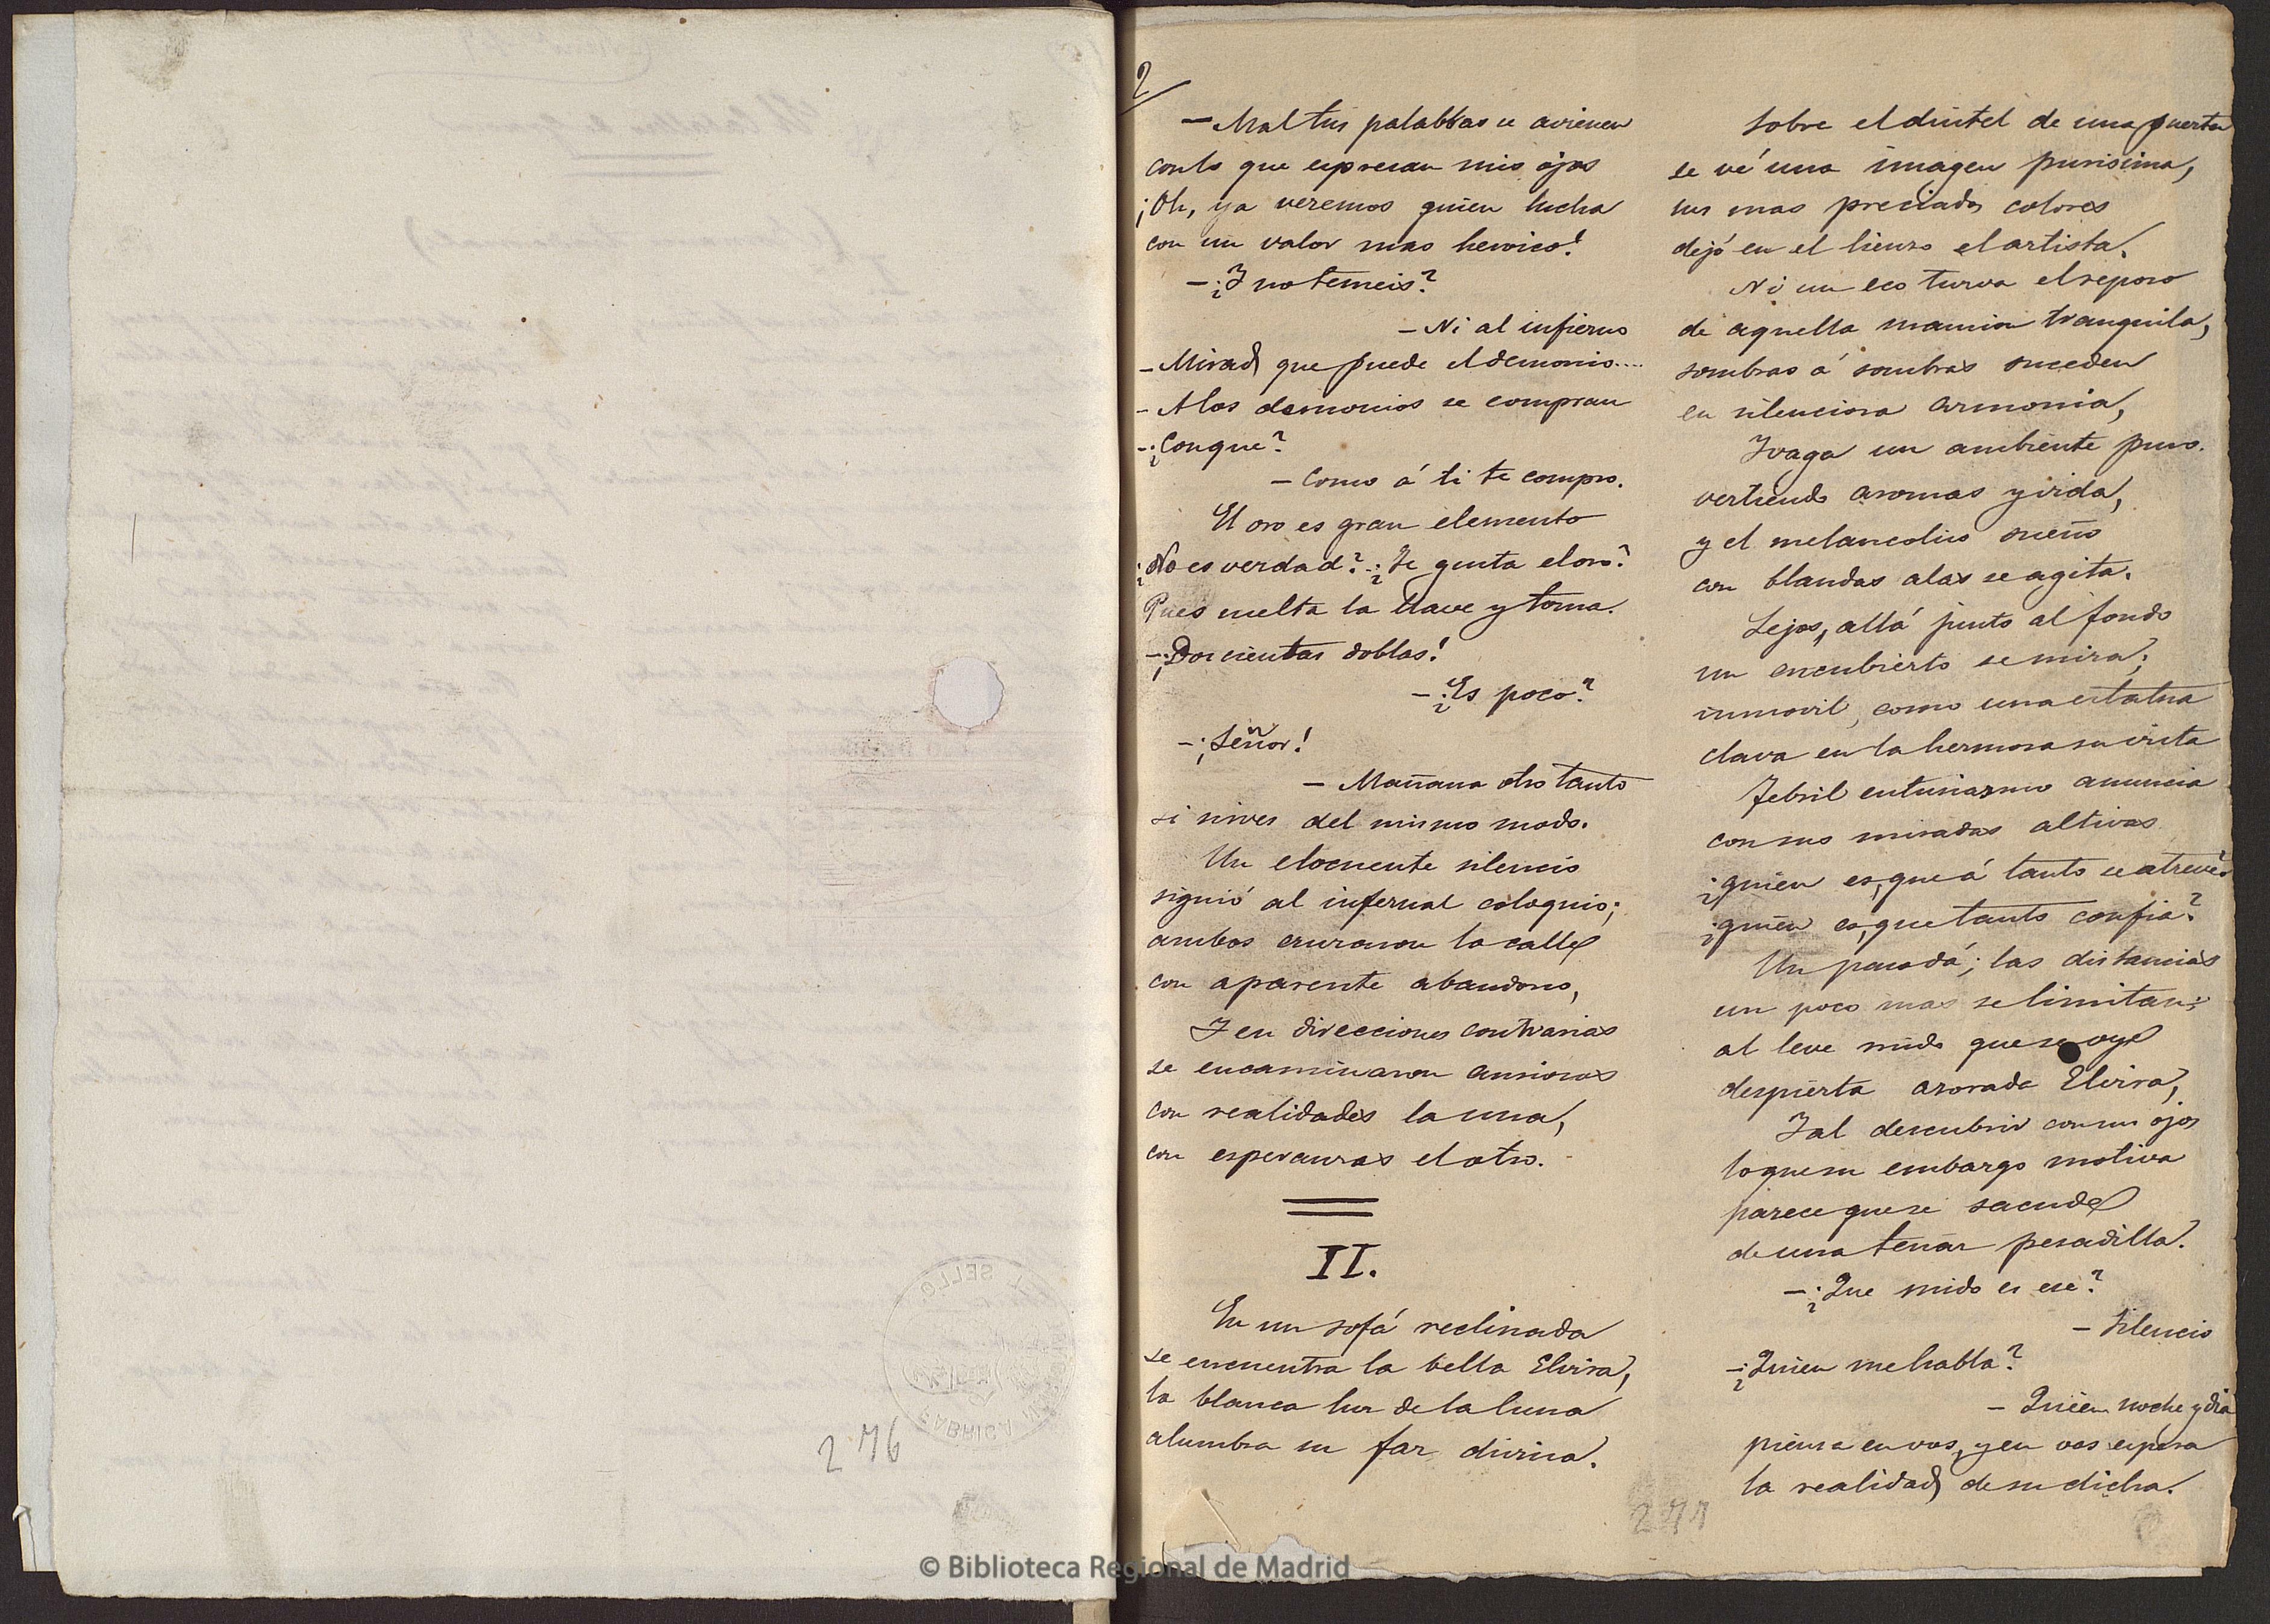 276
2
— Mal tus palabras se avienen
con lo que espresan mis ojos
¡Oh, ya veremos quien lucha
con un valor mas heroico!
— ¿Y no temeis?
— Ni al infierno
— Mirad que puede el demonio....
— A los demonios se compran
— ¿Conque?
— Como á ti te compro.
El oro es gran elemento
¿No es verdad? ¿Te gusta el oro?
Pues suelta la llave y toma.
— ¡Doscientas doblas!
— ¿Es poco?
— ¡Señor!
— Mañana otro tanto
si sirves del mismo modo.
Un elocuente silencio
siguió al infernal coloquio;
ambos cruzaron la calle
con aparente abandono,
Y en direcciones contrarias
se encaminaron ansiosos
con realidades la una,
con esperanzas el otro.
II.
En un sofá reclinada
se encuentra la bella Elvira,
la blanca luz de la luna
alumbra su faz divina.
Sobre el dintel de una puerta
se vé una imagen purisima,
sus mas preciados colores
dejó en el lienzo el artista.
Ni un eco turva el reposo
de aquella mansion tranquila,
sombras á sombras suceden
en silenciosa armonia,
Y vaga un ambiente puro
vertiendo aromas y vida,
y el melancolico sueño
con blandas alas se agita.
Lejos, allá junto al fondo
un encubierto se mira;
inmovil, como una estatua
clava en la hermosa su vista
Febril entusiasmo anuncia
con sus miradas altivas
¿quien es, que á tanto se atreve?
¿quien es, que tanto confia?
Un paso dá; las distancias
un poco mas se limitan;
al leve ruido que se oye
despierta azorada Elvira,
Y al descubrir con sus ojos
lo que su embargo motiva
parece que se sacude
de una tenaz pesadilla.
— ¿Que ruido es ese?
— Silencio
— ¿Quien me habla?
— Quien noche y dia
piensa en vos, y en vos espera
la realidad de su dicha.
277
© Biblioteca Regional de Madrid